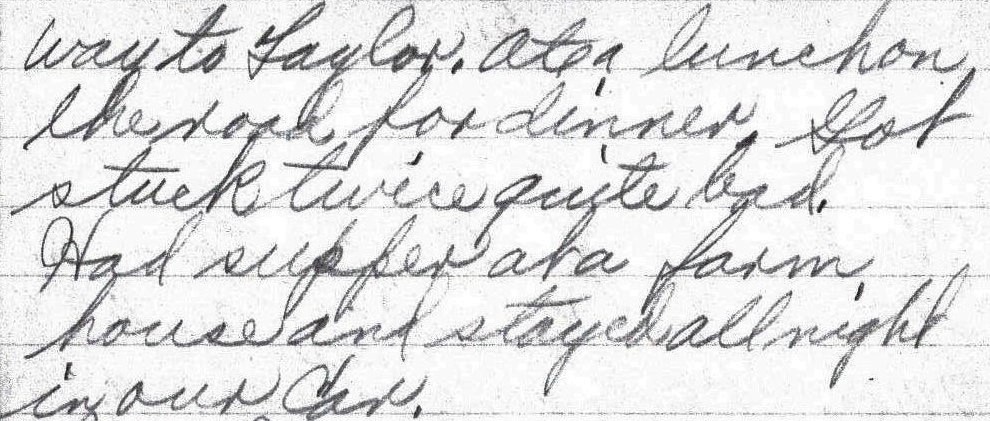 way to Taylor. Ate a lunch on
the road for dinner. Got
stuck twice quite bad.
Had supper at a farm
house and stayed all night
in our car.